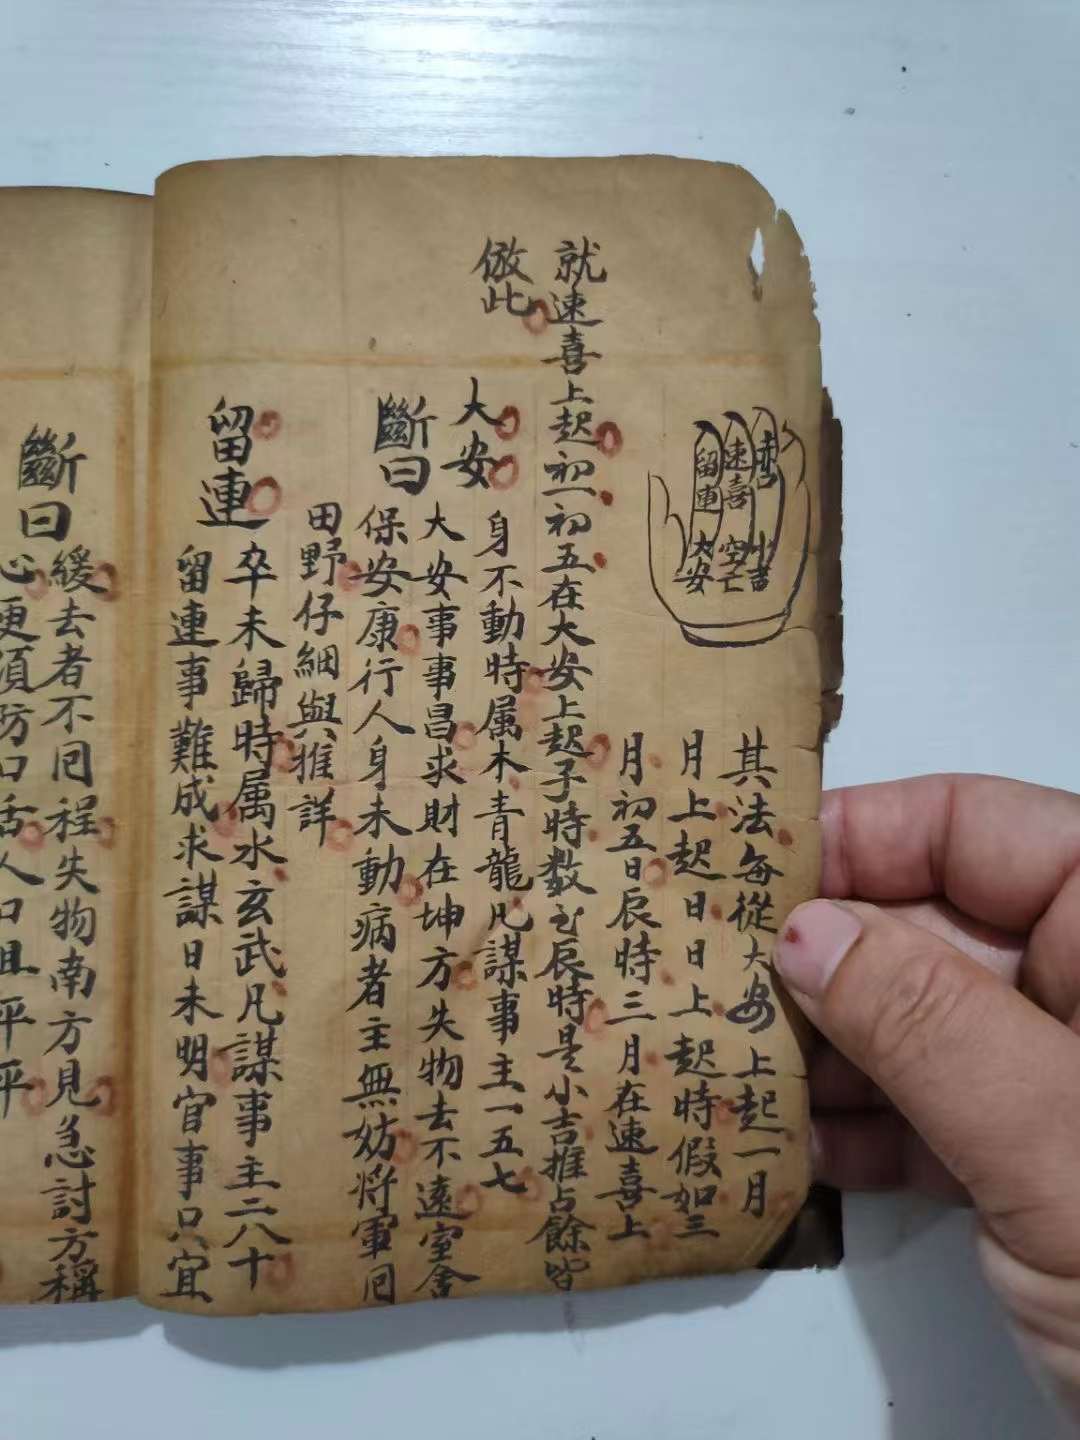 留連
速喜
赤口
大安
空亡
小吉
其法每從大安上起一月
月上起日日上起時假如三
月初五日辰時三月在速喜上
就速喜上起初一初五在大安上起子時数至辰時是小吉推占餘皆
倣此
大安
身不動時属木青龍凡謀事主一五七
斷曰
大安事事昌求財在坤方失物去不遠室舍
保安康行人身未動病者主無妨将軍囘
田野仔細與推詳
留連
卒未歸時属水玄武凡謀事主二八十
留連事難成求謀日未明官事只宜
斷曰
緩去者不囘程失物南方見急討方稱
心更須防口舌人口且平平